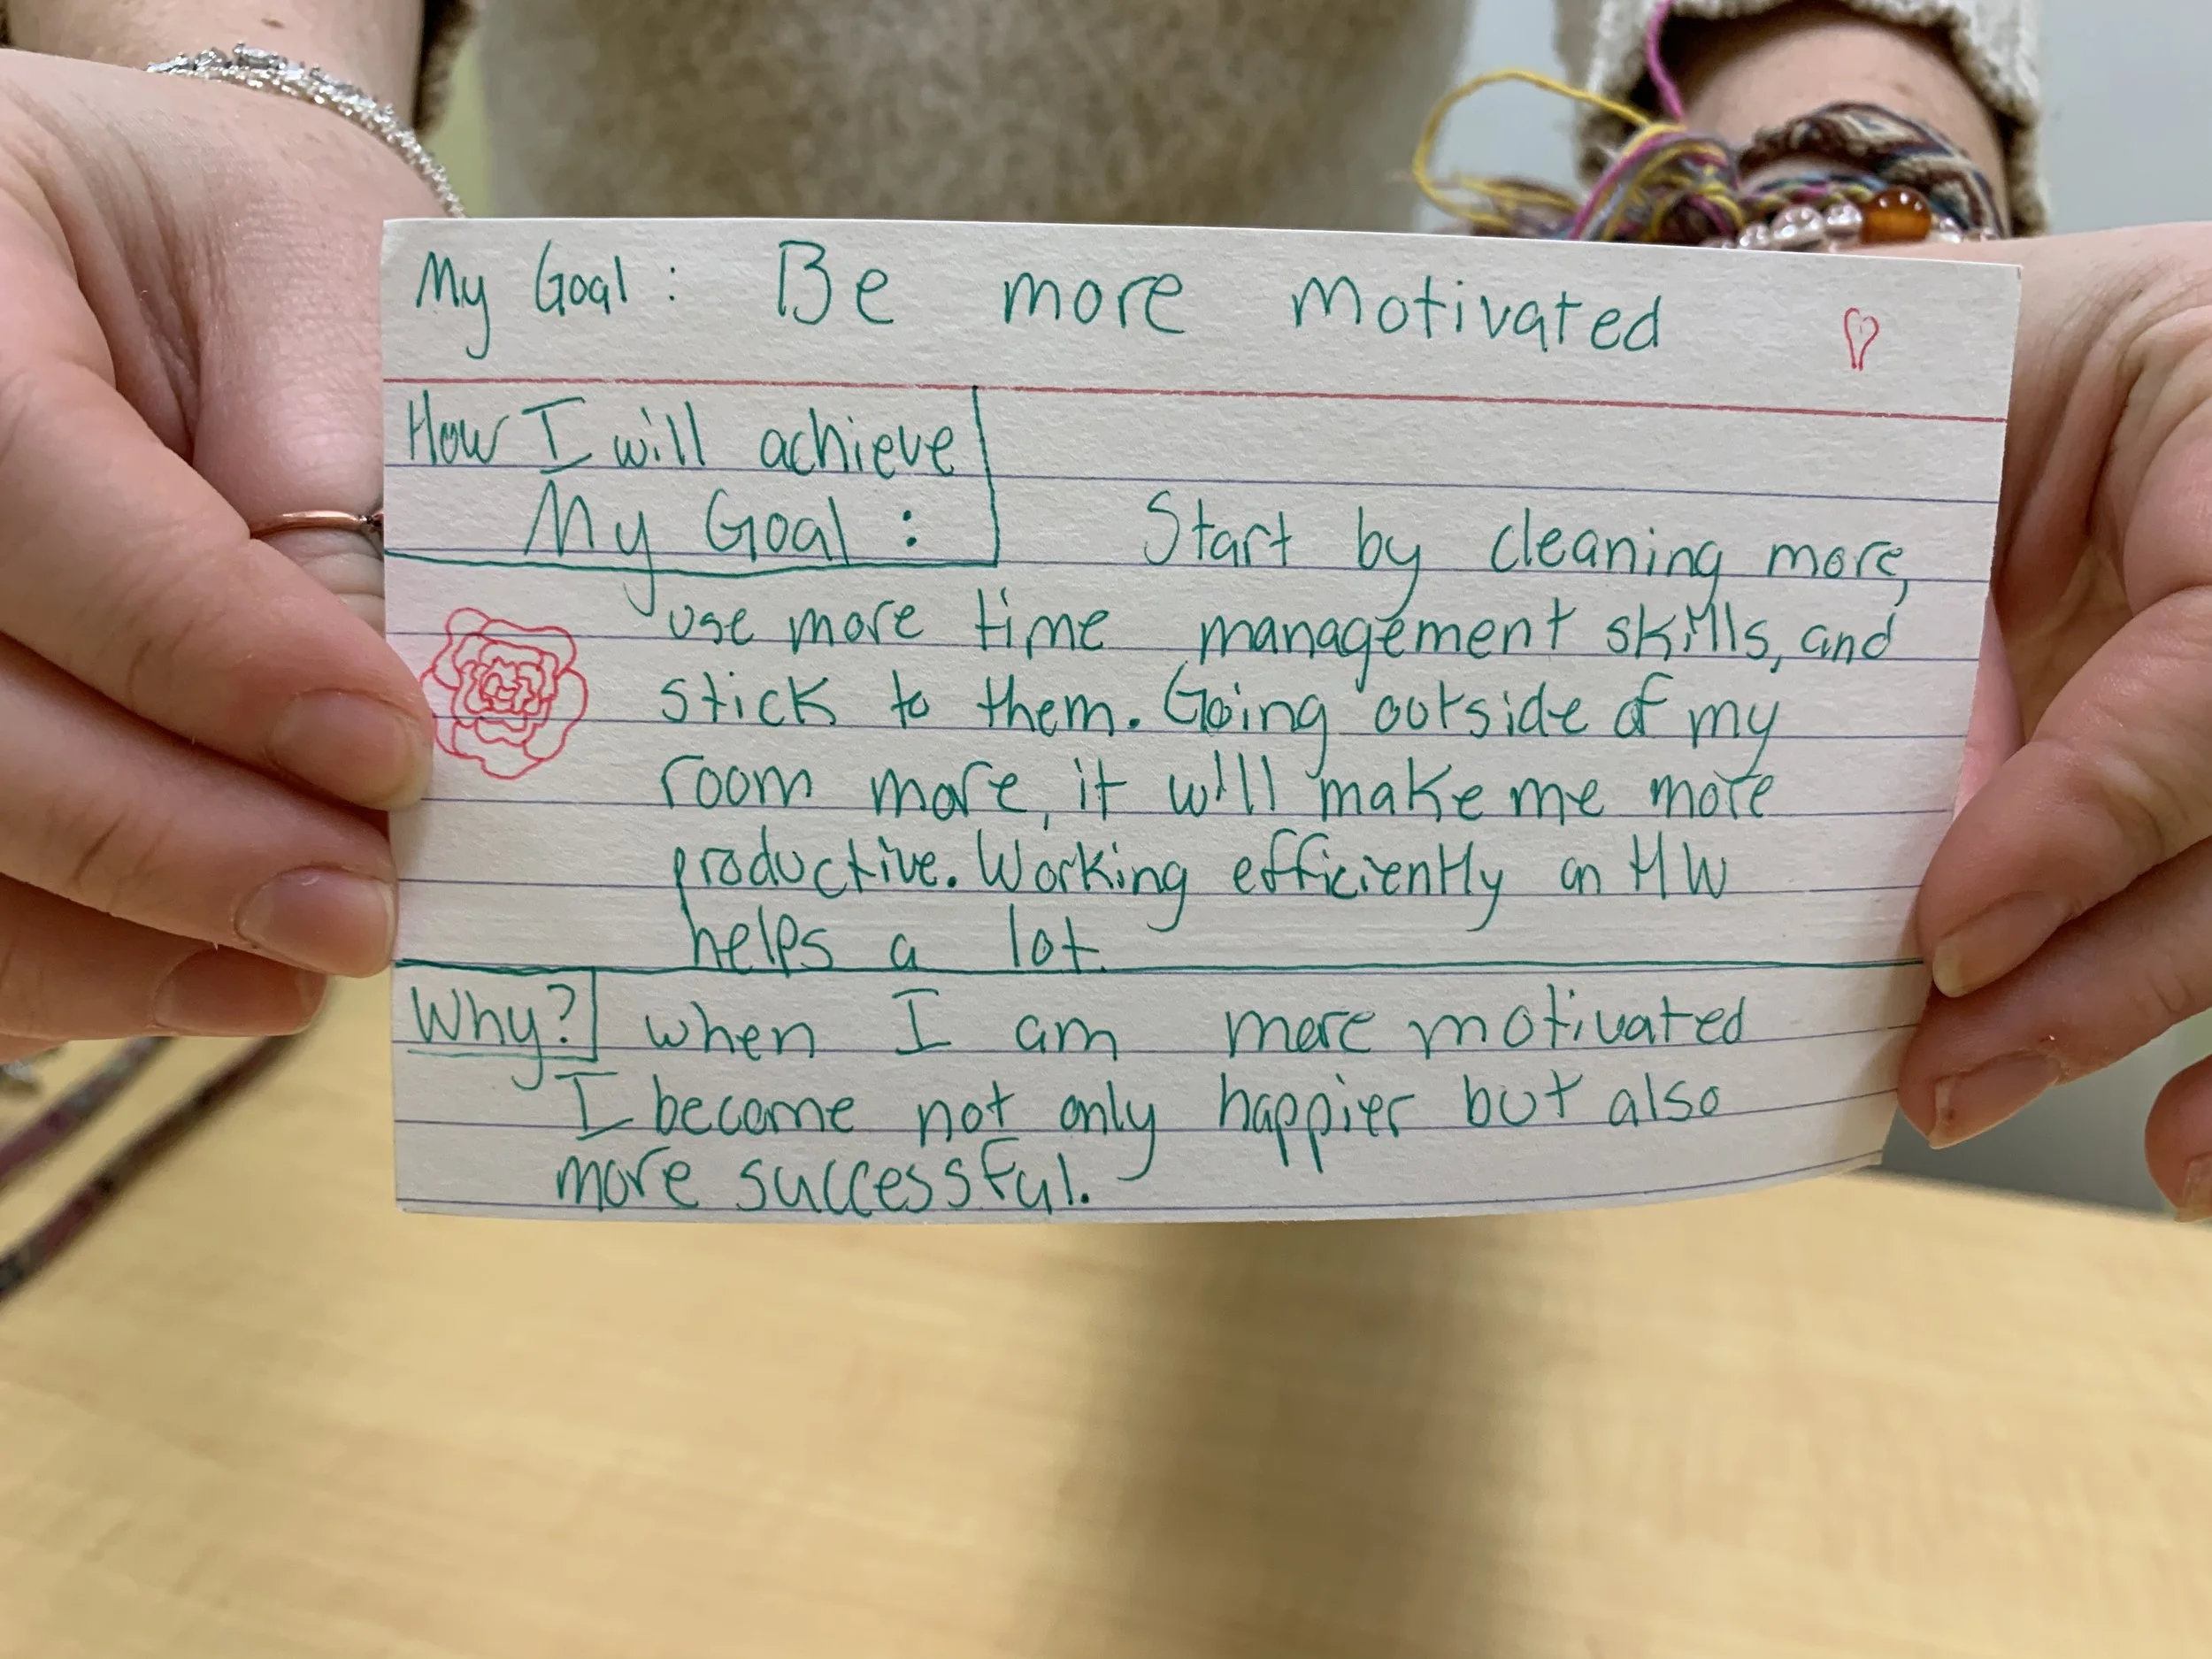 My Goal: Be more motivated
How I will achieve
My Goal: Start by cleaning more,
use more time management skills, and
stick to them. Going outside of my
room more, it will make me more
productive. Working efficiently on HW
helps a lot.
Why? when I am more motivated
I become not only happier but also
more successful.